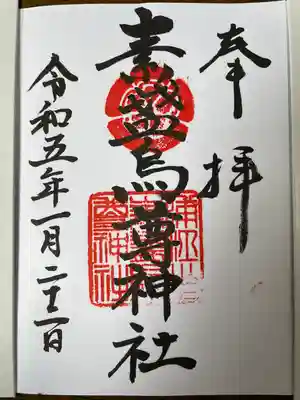 奉拝
素盞烏尊神社
令和五年一月二十一日